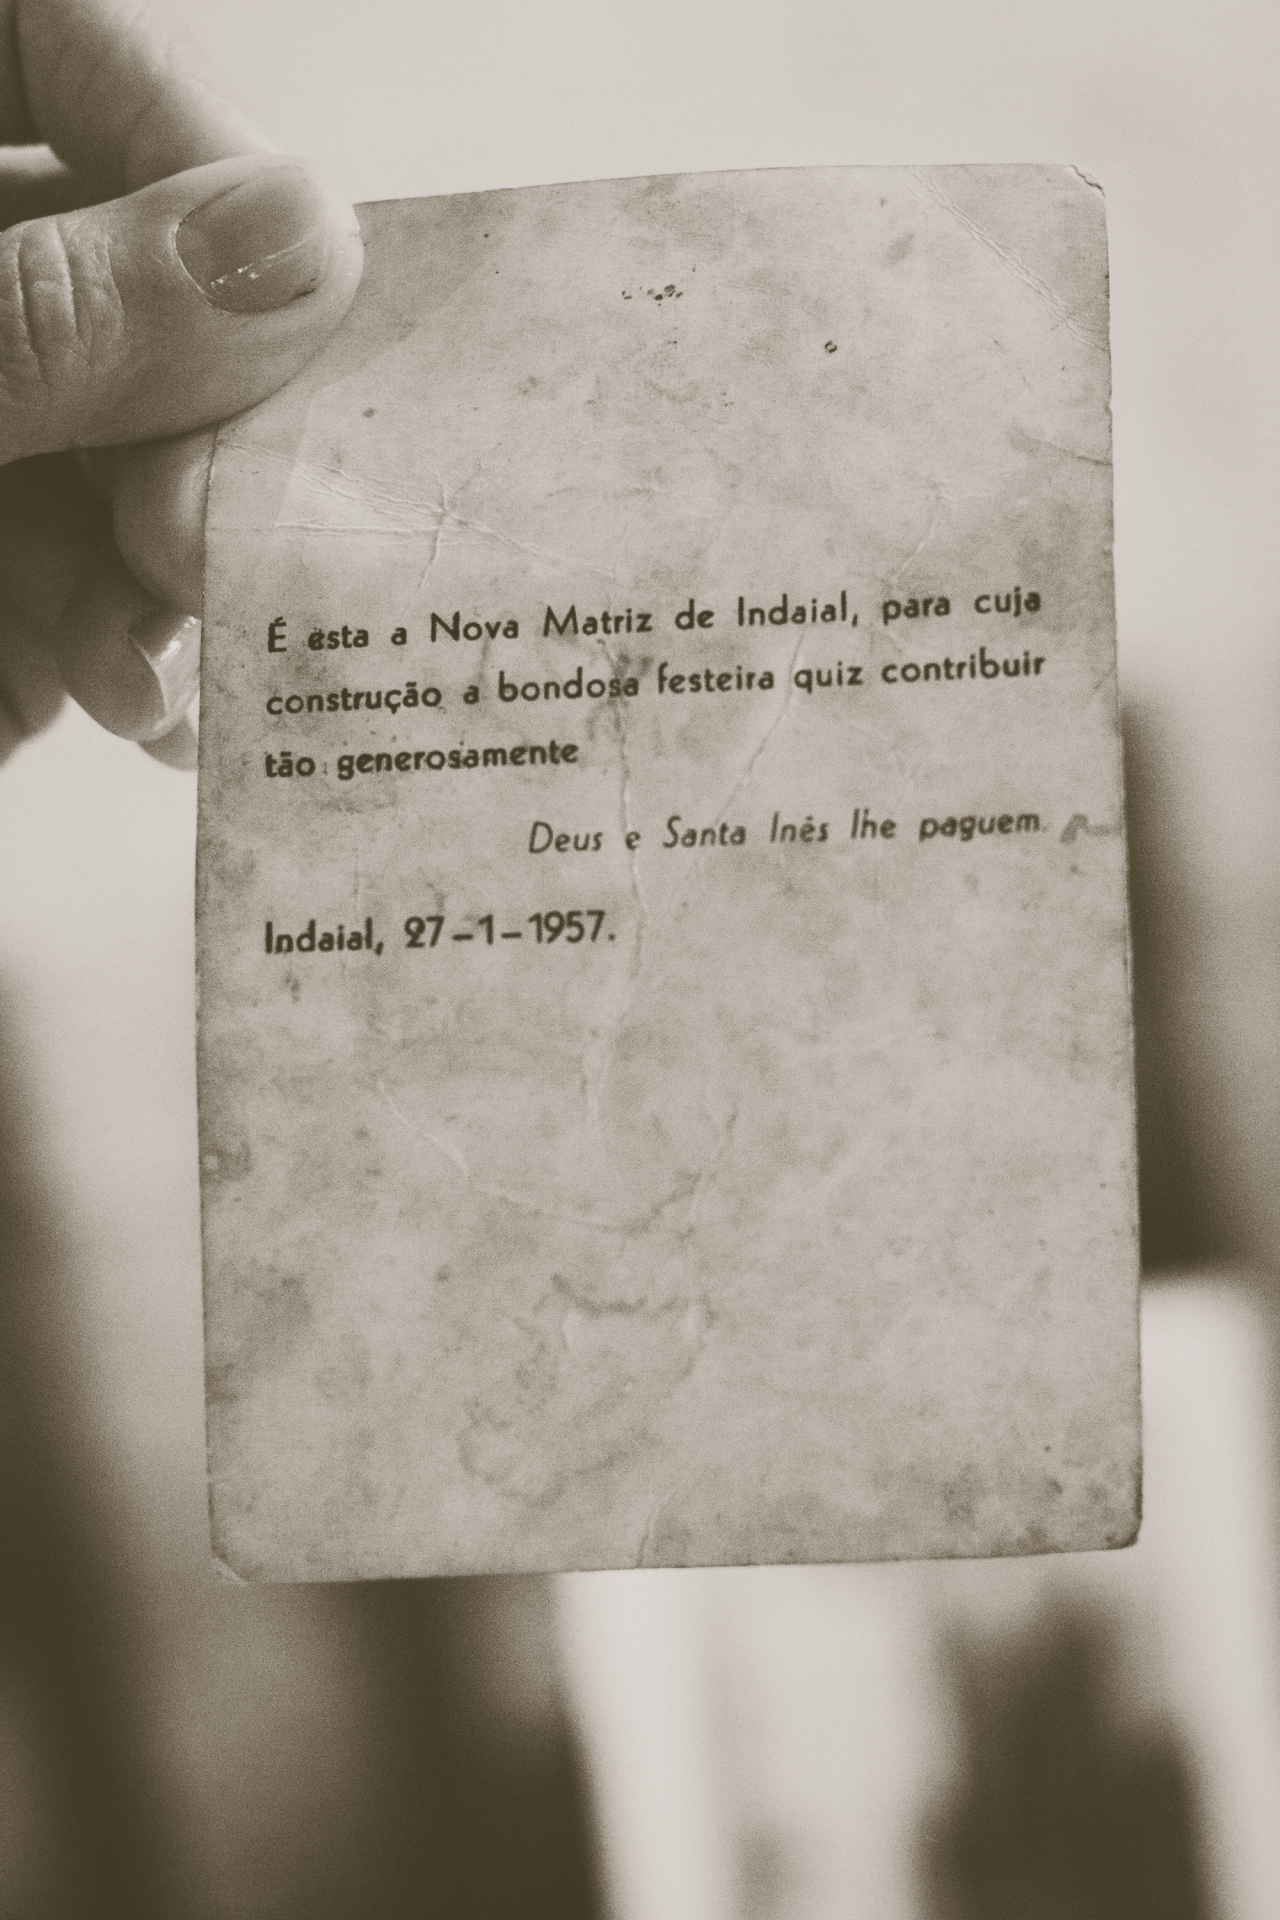 É esta a Nova Matriz de Indaial, para cuja
construção a bondosa festeira quiz contribuir
tão generosamente
Deus e Santa Inês lhe paguem.
Indaial, 27-1-1957.